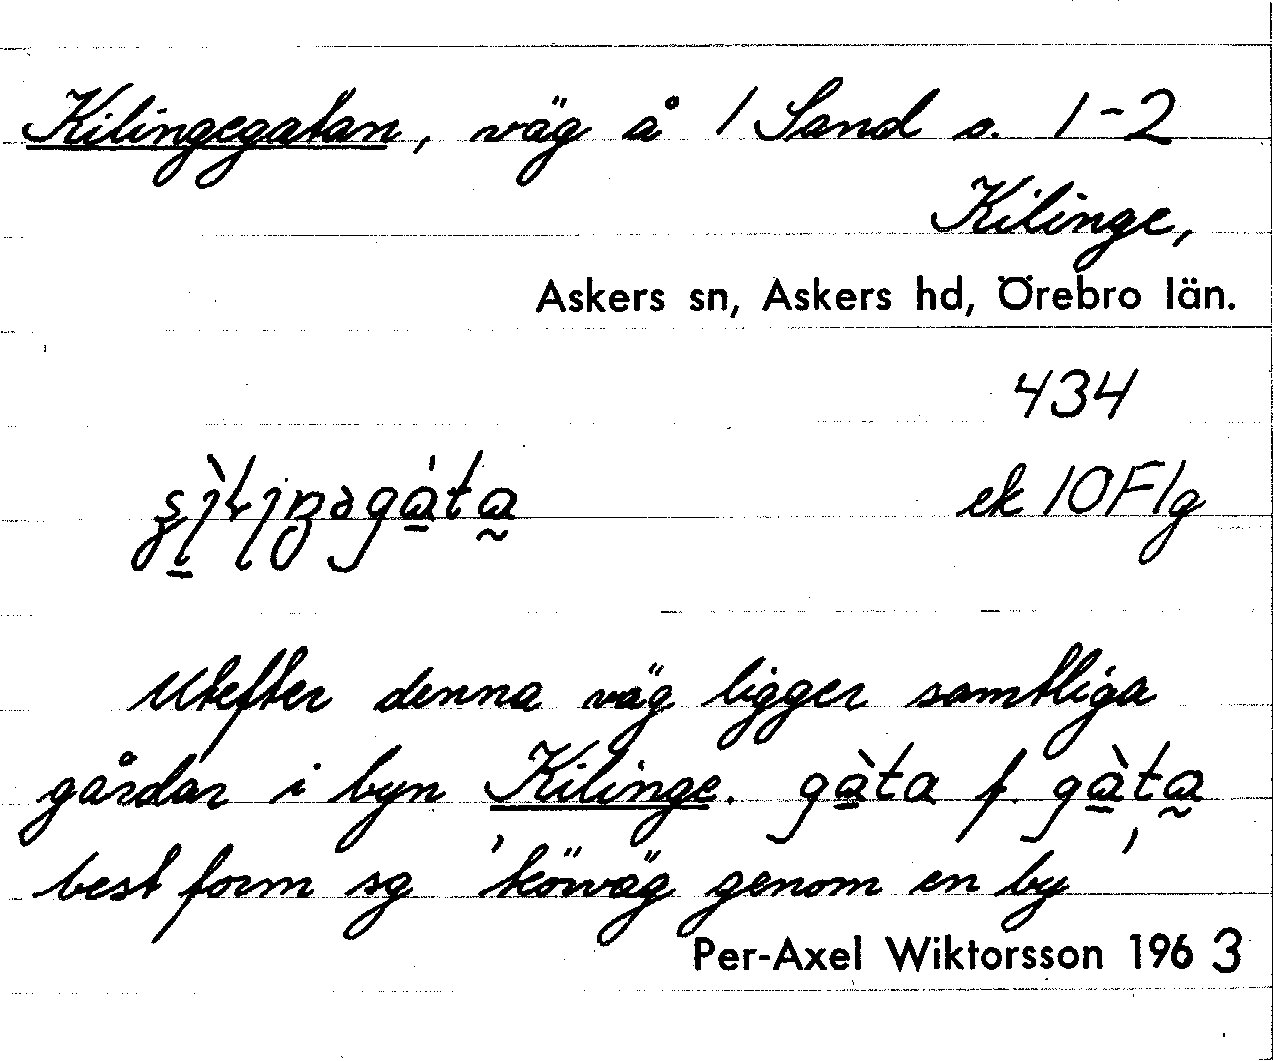 Kilingegatan, väg å 1 Sand o. 1-2
Kilinge,
Askers sn, Askers hd, Örebro län.
434
ek 10F1g
Utefter denna väg ligger samtliga
gårdar i byn Kilinge. gàta f. gàta
best form sg 'köväg genom en by'
Per-Axel Wiktorsson 1963